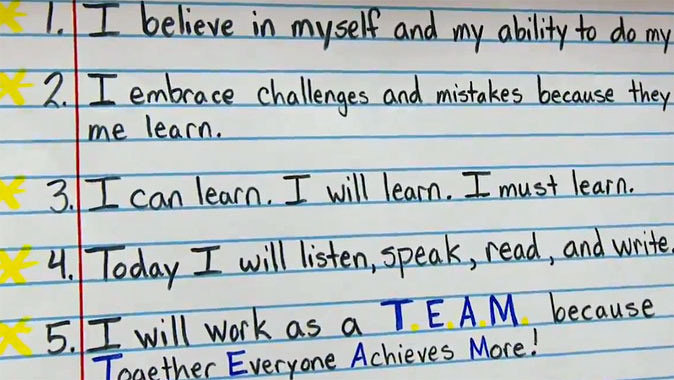 1. I believe in myself and my ability to do my
2. I embrace challenges and mistakes because they
me learn.
3. I can learn. I will learn. I must learn.
4. Today I will listen, speak, read, and write.
5. I will work as a T.E.A.M. because
Together Everyone Achieves More!